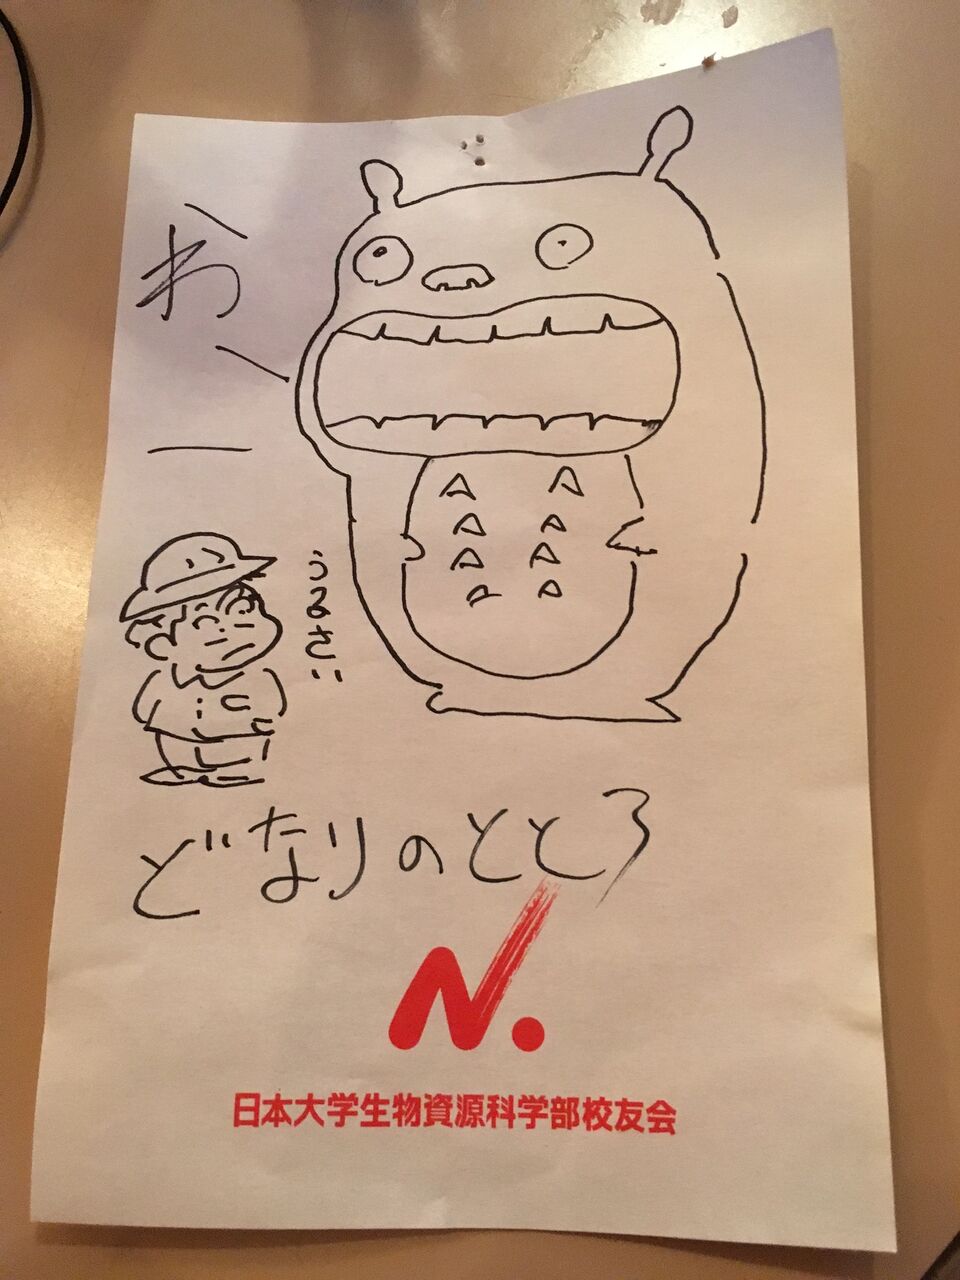 わー
うるさい
どなりのととろ
N.
日本大学生物資源科学部校友会